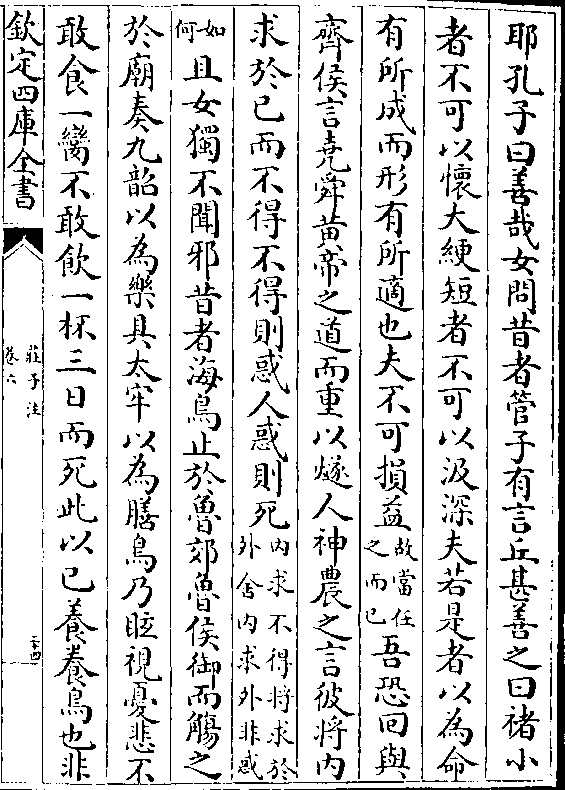 耶孔子曰善哉女問昔者管子有言丘甚善之曰褚小
者不可以懷大綆短者不可以汲深夫若是者以為命
有所成而形有所適也夫不可損益故當任之而已吾恐回與
齊侯言堯舜黄帝之道而重以燧人神農之言彼將内
求於已而不得不得則惑人惑則死内求不得將求於外舍内求外非惑
如何且女獨不聞邪昔者海鳥止於魯郊魯侯御而觴之
於廟奏九韶以為樂具太牢以為膳鳥乃眩視憂悲不
敢食一臠不敢飲一杯三日而死此以已養養鳥也非
欽定四庫全書
莊子注
卷六
二十四